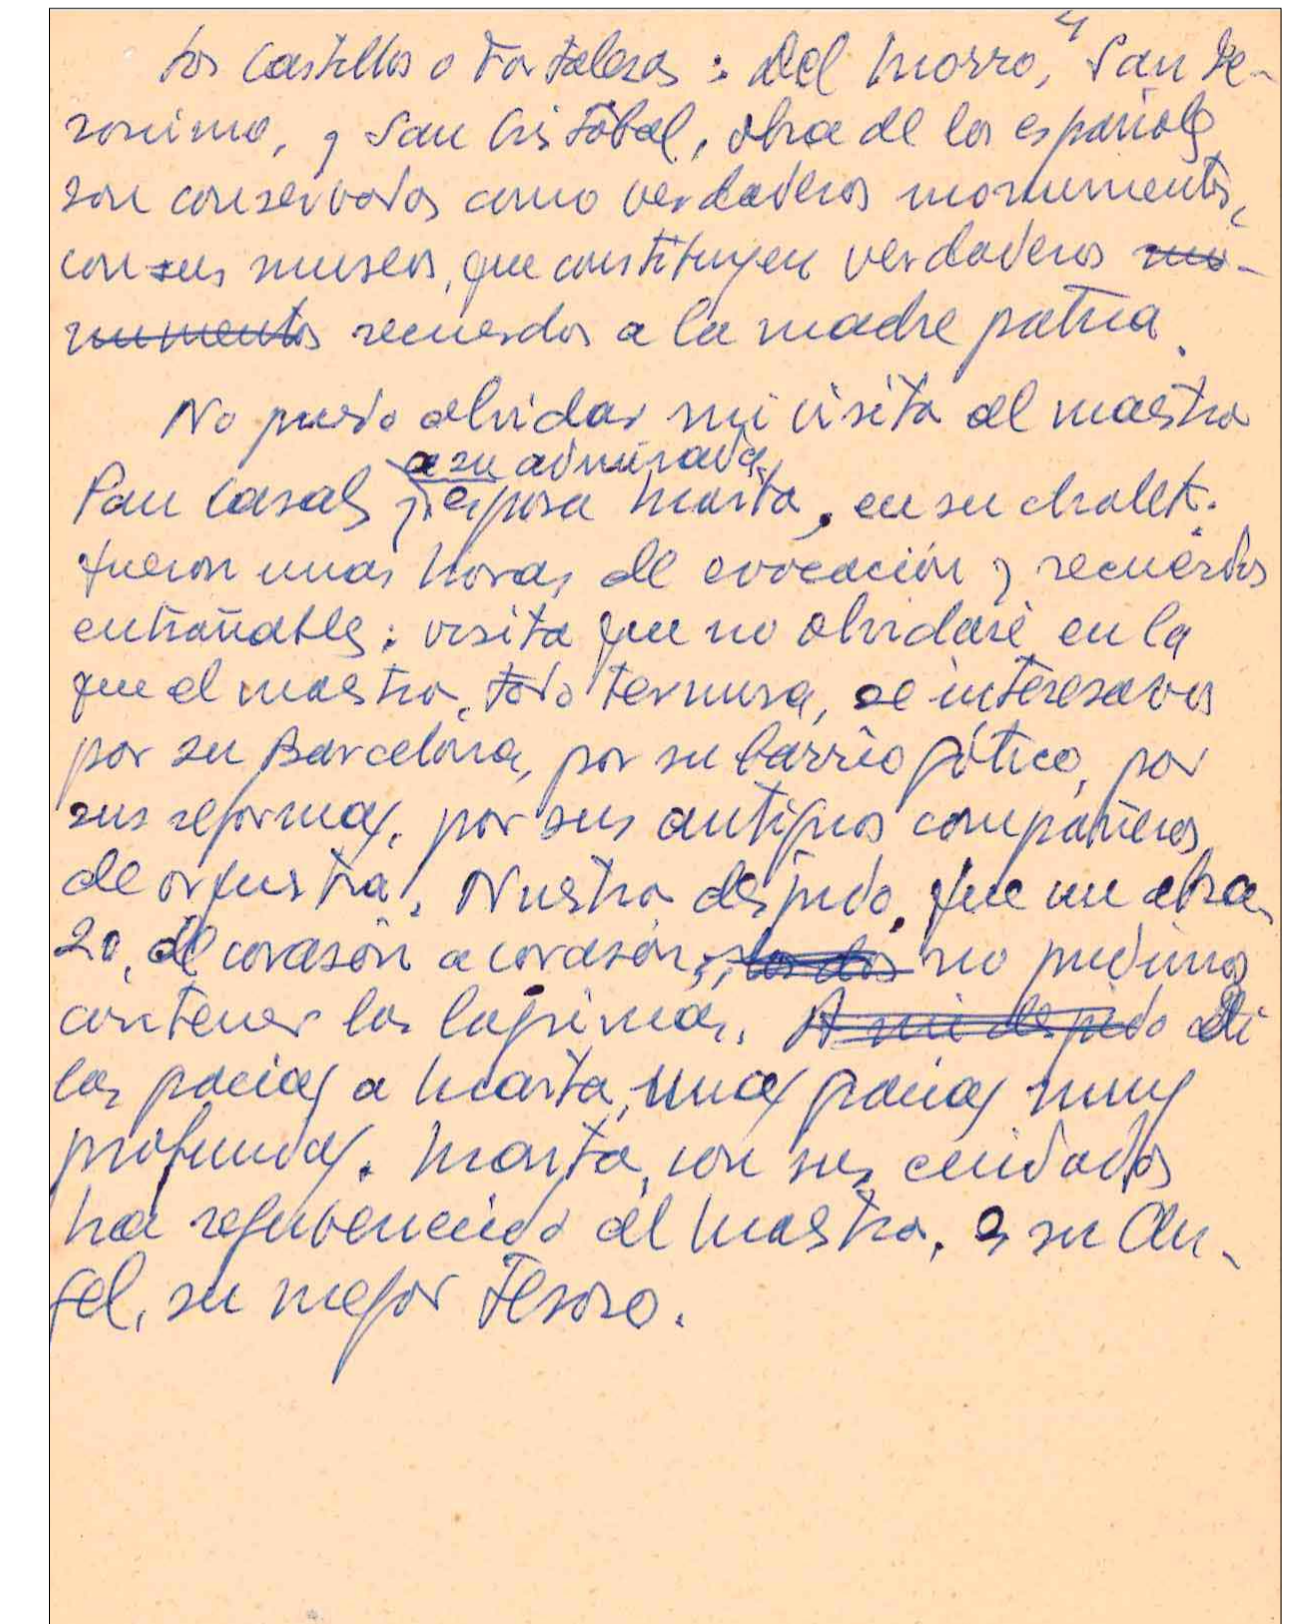 4
Los Castillos o Fortalesas : Del Morro, San Je-
ronimo, y San Cristóbal, obra de los españoles
son conservados como verdaderos monumentos,
con sus museos, que constituyen verdaderos mo-
numentos recuerdos a la madre patria.
No puedo olvidar mi visita al maestro
a su admirada
Pau Casals y esposa Marta, en su chalet.
fueron unas horas de evocación y recuerdos
entrañables; visita que no olvidaré en la
que el maestro, todo ternura, se interesava
por su Barcelona, por su barrio gótico, por
sus reformas, por sus antiguos compañeros
de orquestra. Nuestro despido, fue un abra-
zo, de corasón a corasón, los dos no pudimos
contener las lagrimas. A mi despido di
las gracias a Marta, unas gracias muy
profundas. Marta, con sus cuidados
ha rejuvenecido al Maestro, es su An-
gel, su mejor Tesoro.